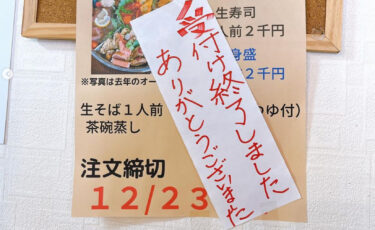 生寿司
人前２千円
身盛
２千円
※写真は去年のオー
生そば１人前
つゆ付）
茶碗蒸し
注文締切
１２/２３
受付け終了しました
ありがとうございました